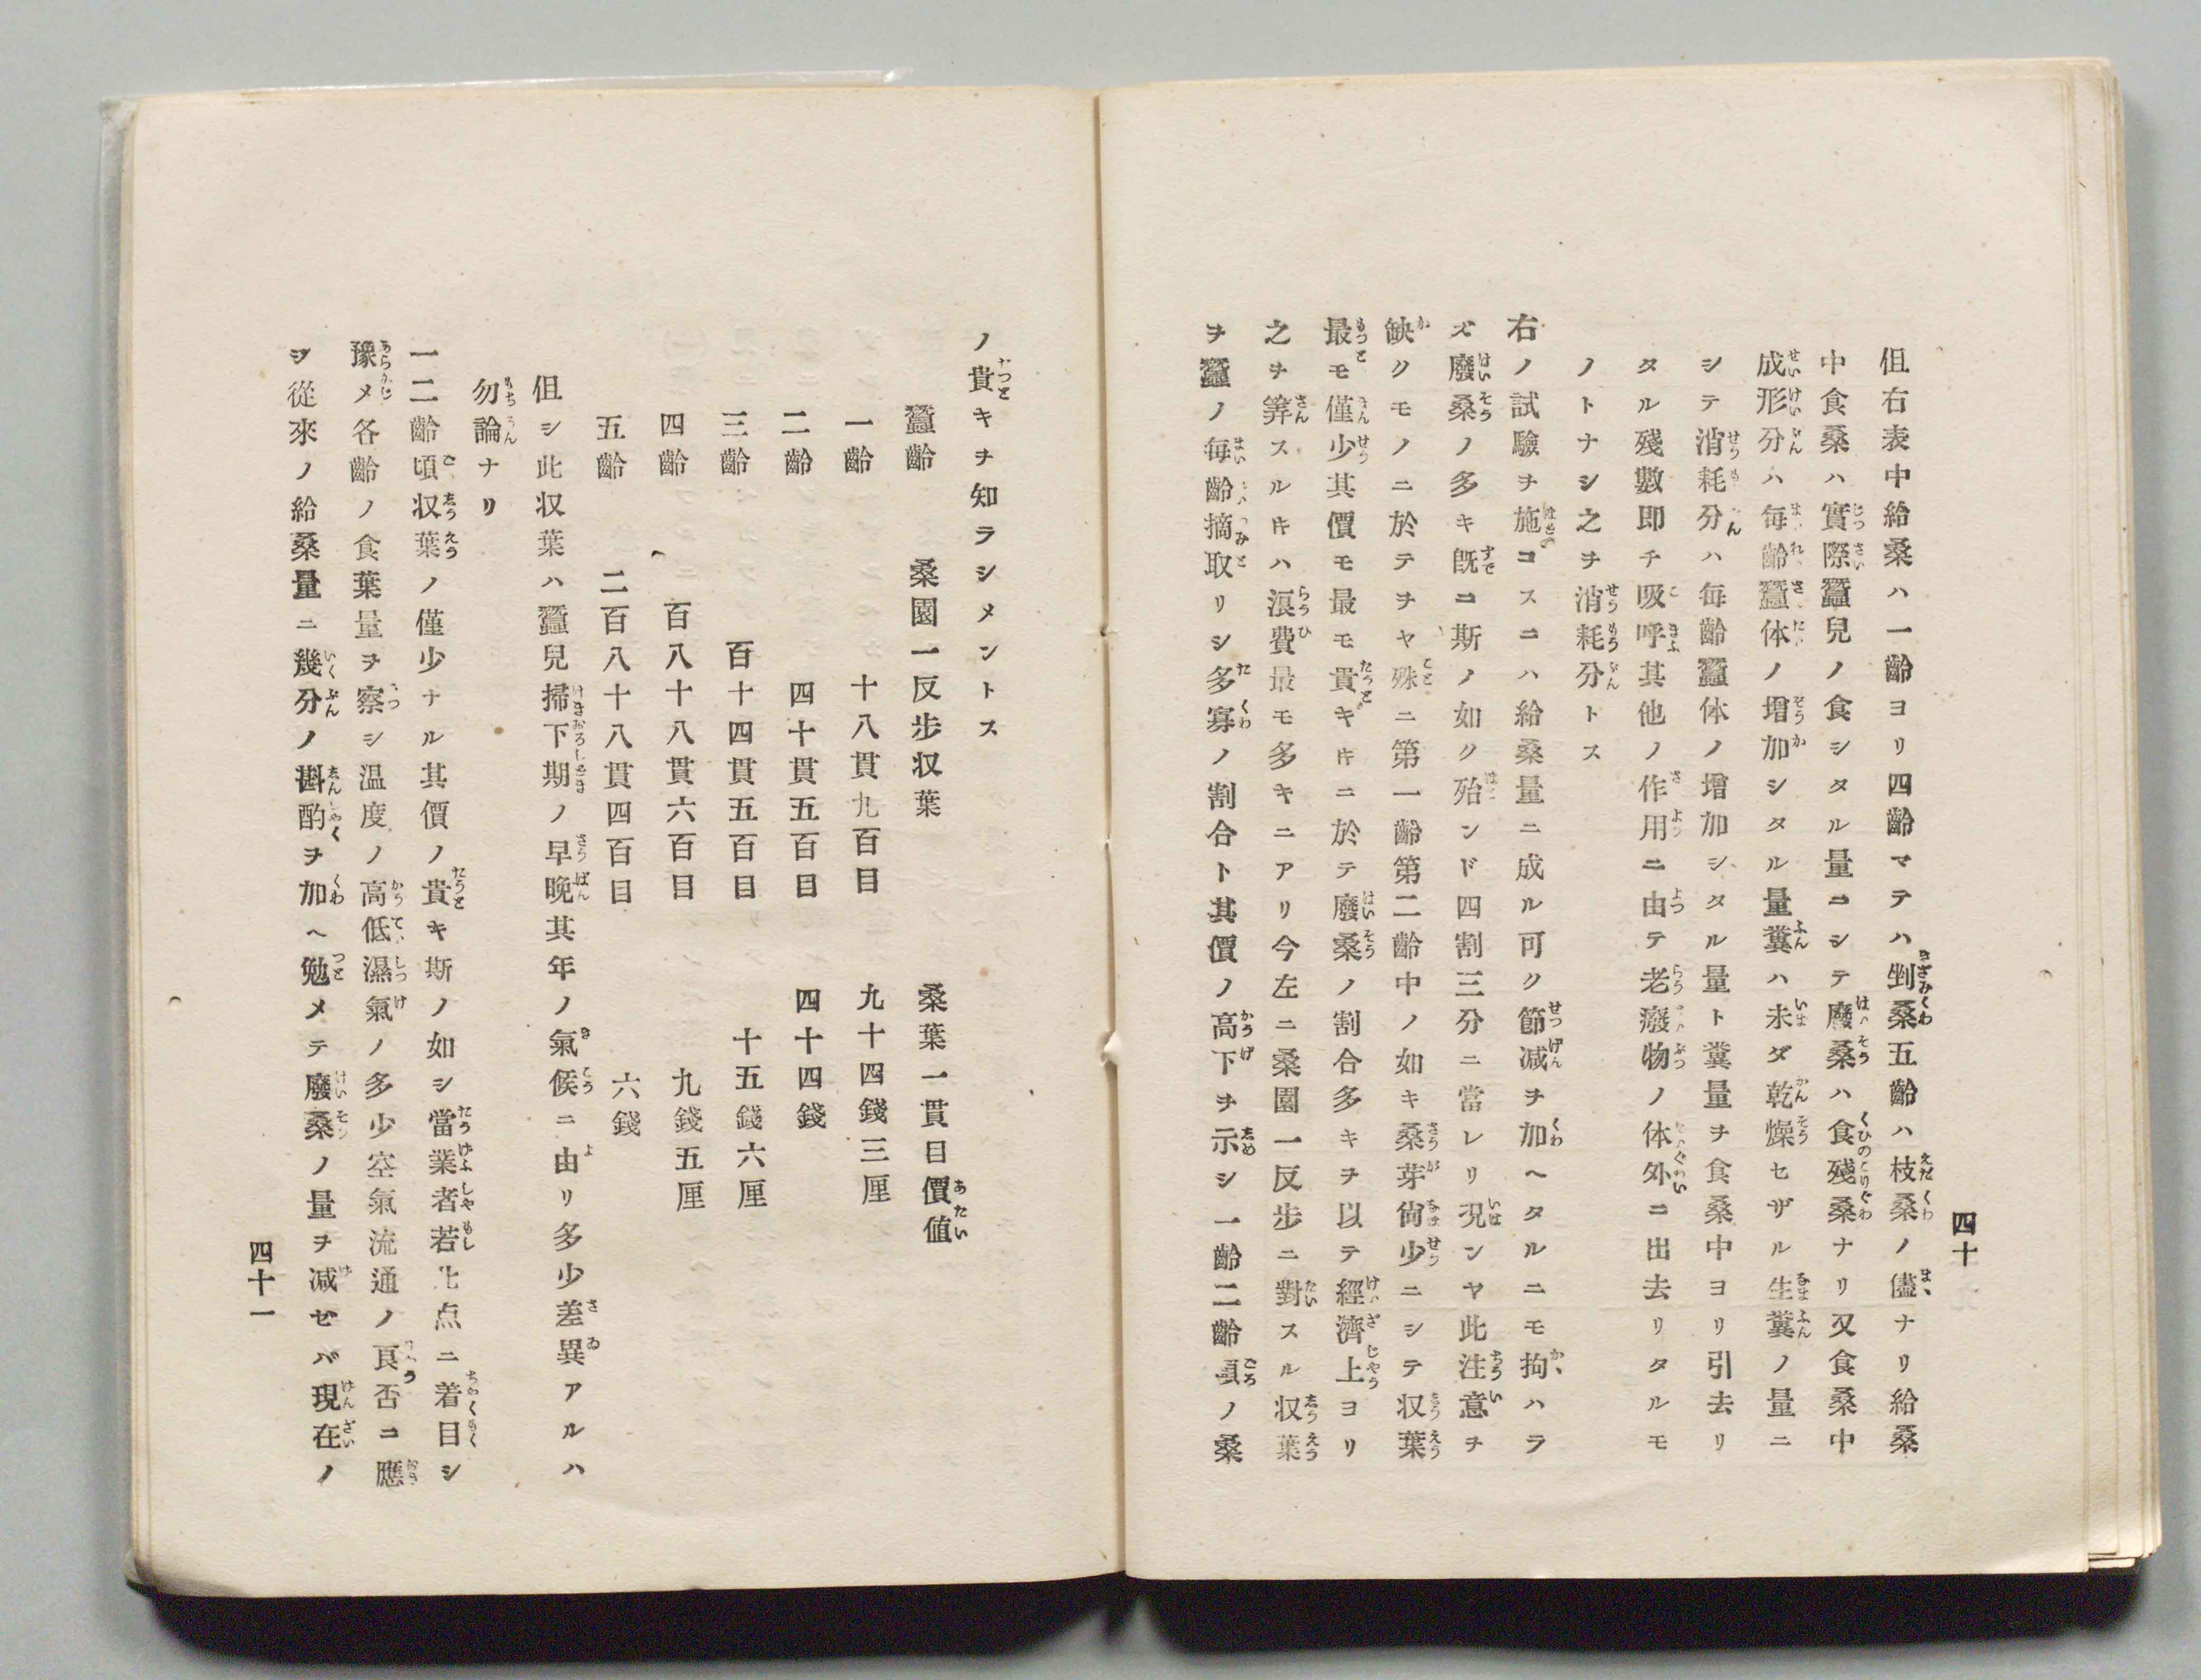 四十
但右表中給桑ハ一齡ヨリ四齡マテハ剉桑五齡ハ枝桑ノ儘ナリ給桑
中食桑ハ實際蠶兒ノ食シタル量ニシテ廢桑ハ食殘桑ナリ又食桑中
成形分ハ每齡蠶体ノ增加シタル量糞ハ未ダ乾燥セザル生糞ノ量ニ
シテ消耗分ハ每齡蠶体ノ增加シタル量ト糞量ヲ食桑中ヨリ引去リ
タル殘數即チ吸呼其他ノ作用ニ由テ老廢物ノ体外ニ出去リタルモ
ノトナシ之ヲ消耗分トス
右ノ試驗ヲ施コスニハ給桑量ニ成ル可ク節减ヲ加ヘタルニモ拘ハラ
ズ廢桑ノ多キ旣ニ斯ノ如ク殆ンド四割三分ニ當レリ况ンヤ此注意ヲ
缺クモノニ於テヲヤ殊ニ第一齡第二齡中ノ如キ桑芽尙少ニシテ収葉
最モ僅少其價モ最モ貴キ𪜈ニ於テ廢桑ノ割合多キヲ以テ經濟上ヨリ
之ヲ筭スル𪜈ハ浪費最モ多キニアリ今左ニ桑園一反步ニ對スル収葉
ヲ蠶ノ每齡摘取リシ多寡ノ割合ト其價ノ高下ヲ示シ一齡二齡頃ノ桑
ノ貴キヲ知ラシメントス
蠶齡 桑園一反步収葉 桑葉一貫目價値
一齡 十八貫九百目 九十四錢三厘
二齡 四十貫五百目 四十四錢
三齡 百十四貫五百目 十五錢六厘
四齡 百八十八貫六百目 九錢五厘
五齡 二百八十八貫四百目 六錢
但シ此収葉ハ蠶兒掃下期ノ早晚其年ノ氣候ニ由リ多少差異アルハ
勿論ナリ
一二齡頃収葉ノ僅少ナル其價ノ貴キ斯ノ如シ當業者若此点ニ着目シ
豫メ各齡ノ食葉量ヲ察シ温度ノ高低濕氣ノ多少空氣流通ノ良否ニ應
ジ從來ノ給桑量ニ幾分ノ斟酌ヲ加ヘ勉メテ廢桑ノ量ヲ减ゼバ現在ノ
四十一